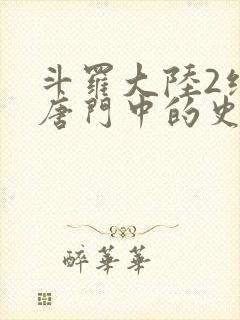 斗羅大陸2
唐門中的史
醉華華